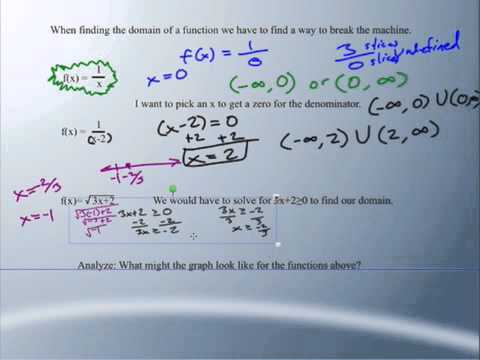 When finding the domain of a function we have to find a way to break the machine.
f(x) = 1/x
x=0
f(x) = 1/0
3 slices
0 slices undefined
(-∞, 0) or (0, ∞)
I want to pick an x to get a zero for the denominator.
(-∞, 0) ∪ (0,
f(x) = 1/(x-2)
(x-2) = 0
+2 +2
x = 2
(-∞, 2) ∪ (2, ∞)
-1 -2/3
x = -2/3
x = -1
f(x)= √3x+2
We would have to solve for 3x+2≥0 to find our domain.
√3(-1)+2
√-3+2
√-1
3x+2 ≥ 0
-2 -2
3x ≥ -2
3x ≥ -2
3 3
x ≥ -2/3
Analyze: What might the graph look like for the functions above?